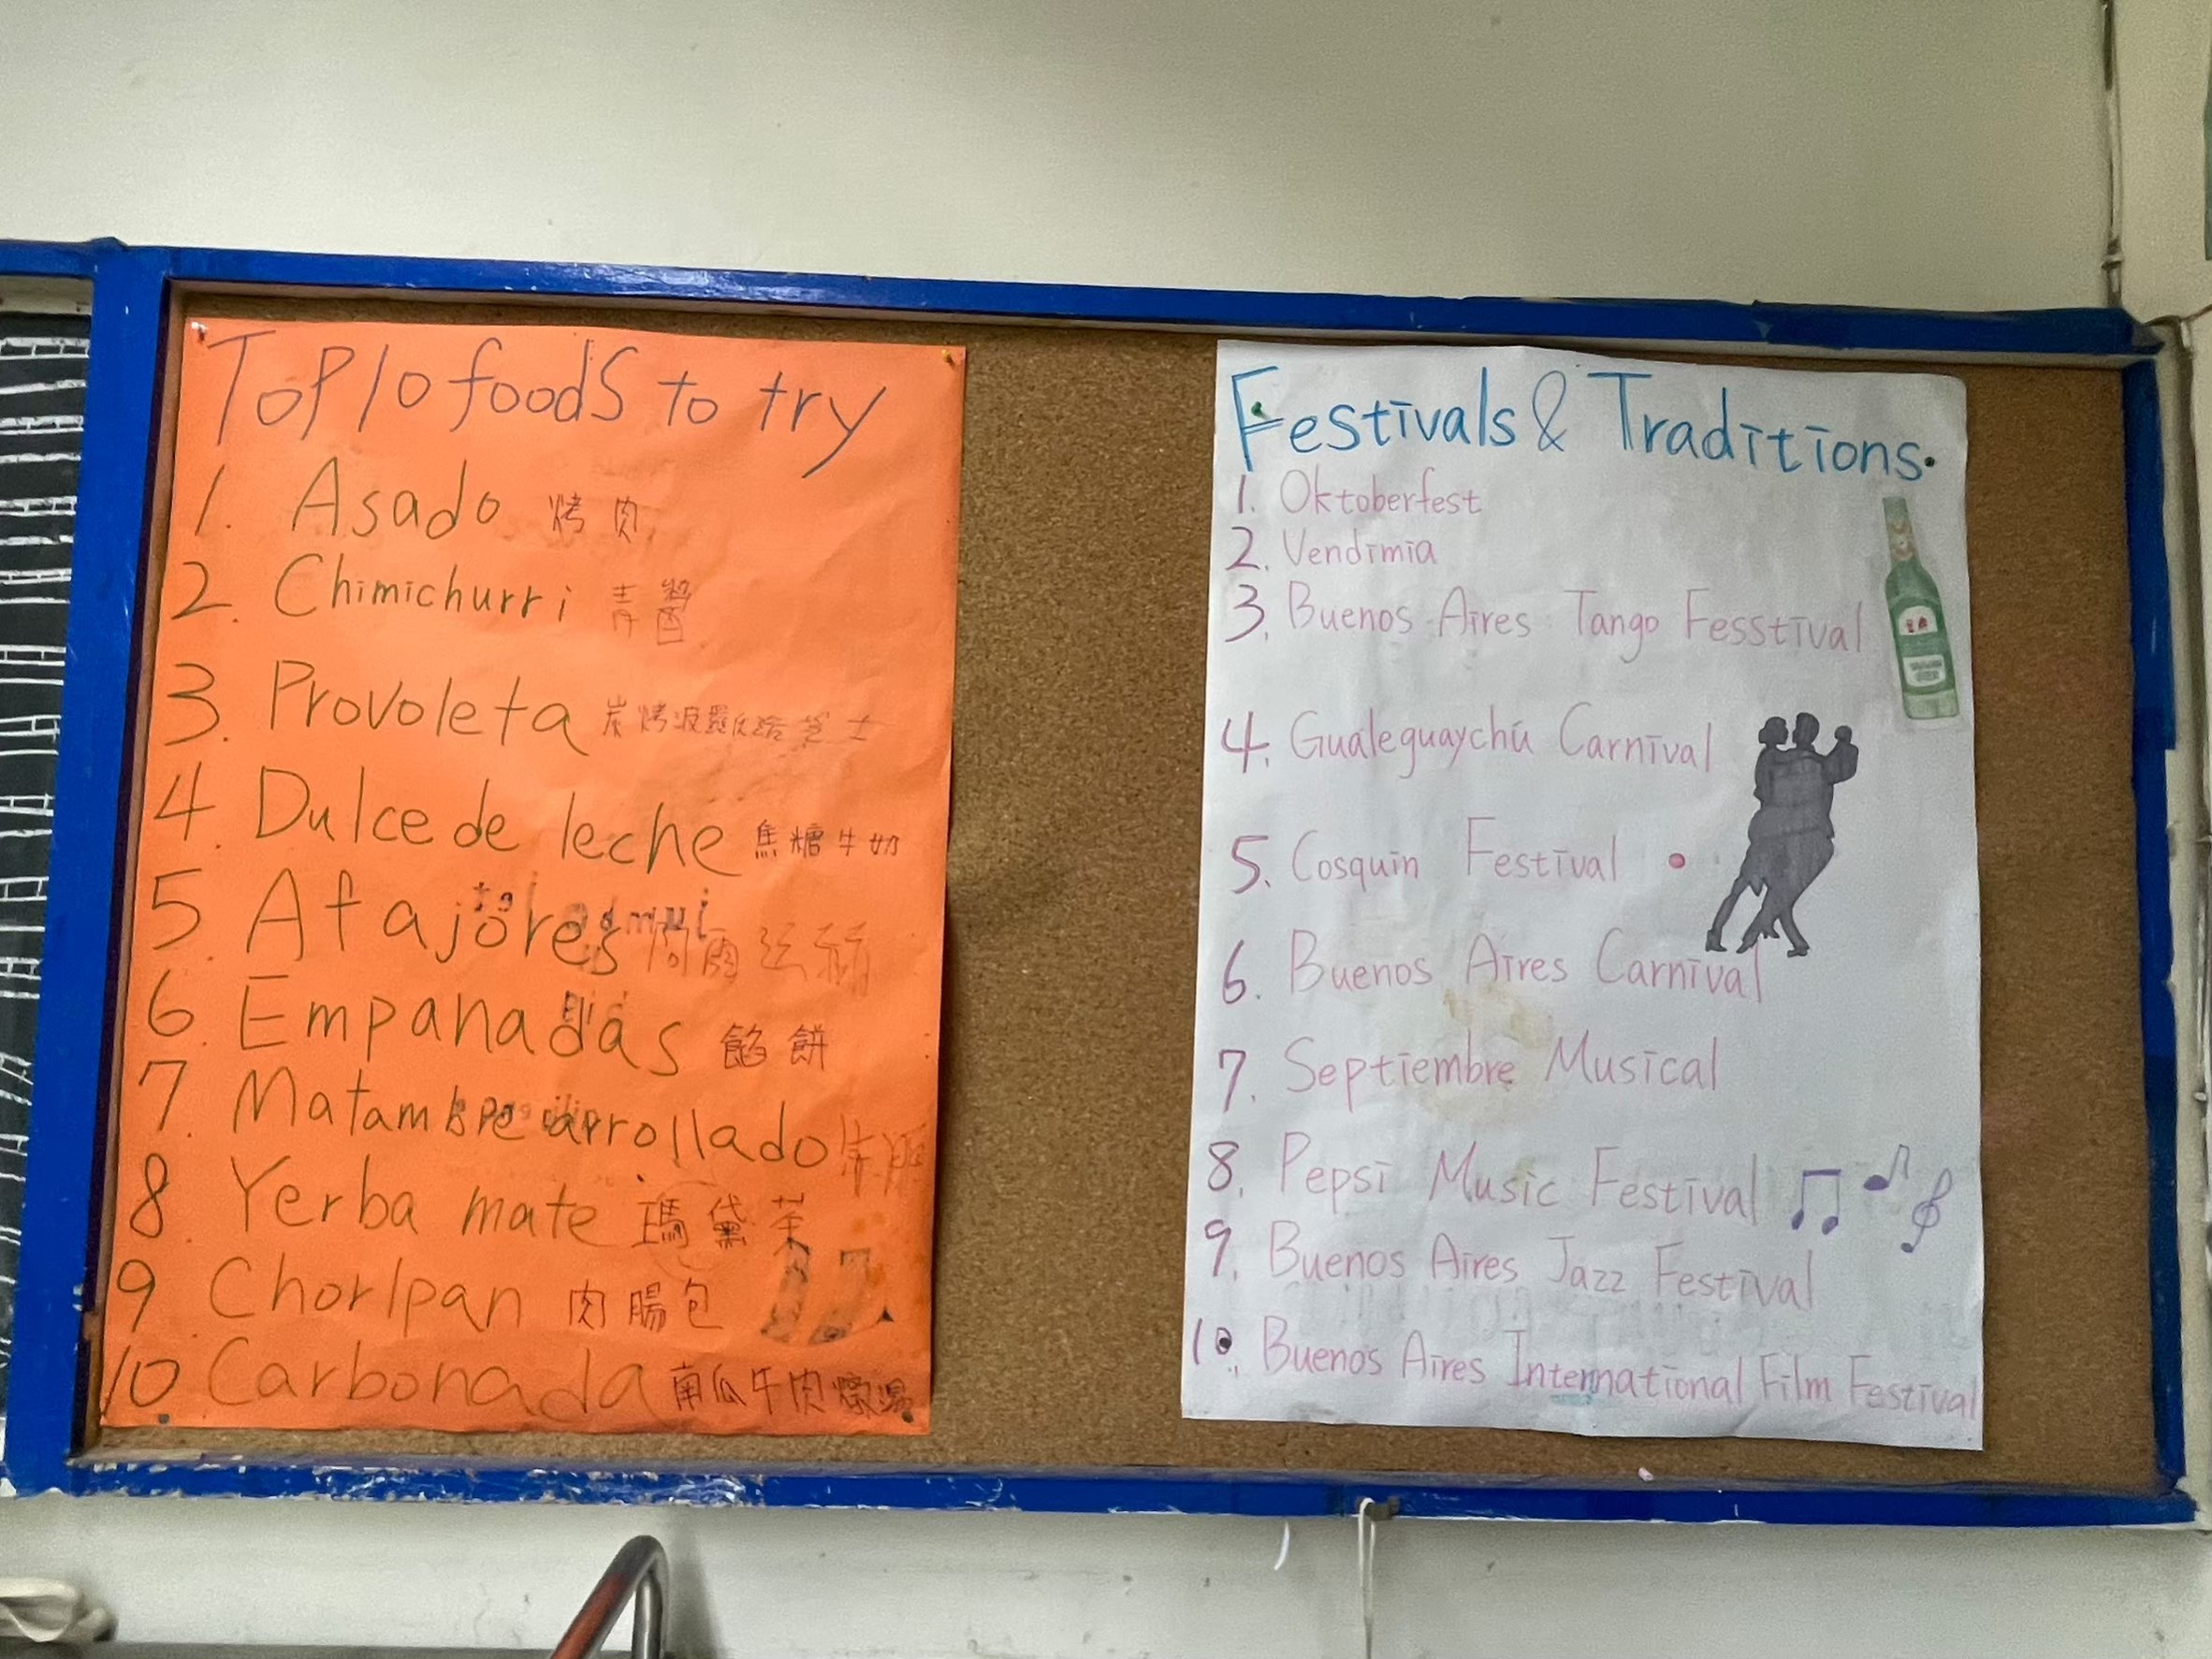 Top 10 foodS to try
1. Asado 烤肉
2. Chimichurri 青醬
3. Provoleta 炭烤波羅伏洛芝士
4. Dulce de leche 焦糖牛奶
5. Afajores
6. Empanadas 餡餅
7. Matambre arrollado
8. Yerba mate 瑪黛茶
9. Chorlpan 肉腸包
10 Carbonada 南瓜牛肉燉湯
Festivals & Traditions.
1. Oktoberfest
2. Vendimia
3. Buenos Aires Tango Fesstival
4. Gualeguaychú Carnival
5. Cosquin Festival
6. Buenos Aires Carnival
7. Septiembre Musical
8. Pepsi Music Festival
9. Buenos Aires Jazz Festival
10. Buenos Aires International Film Festival